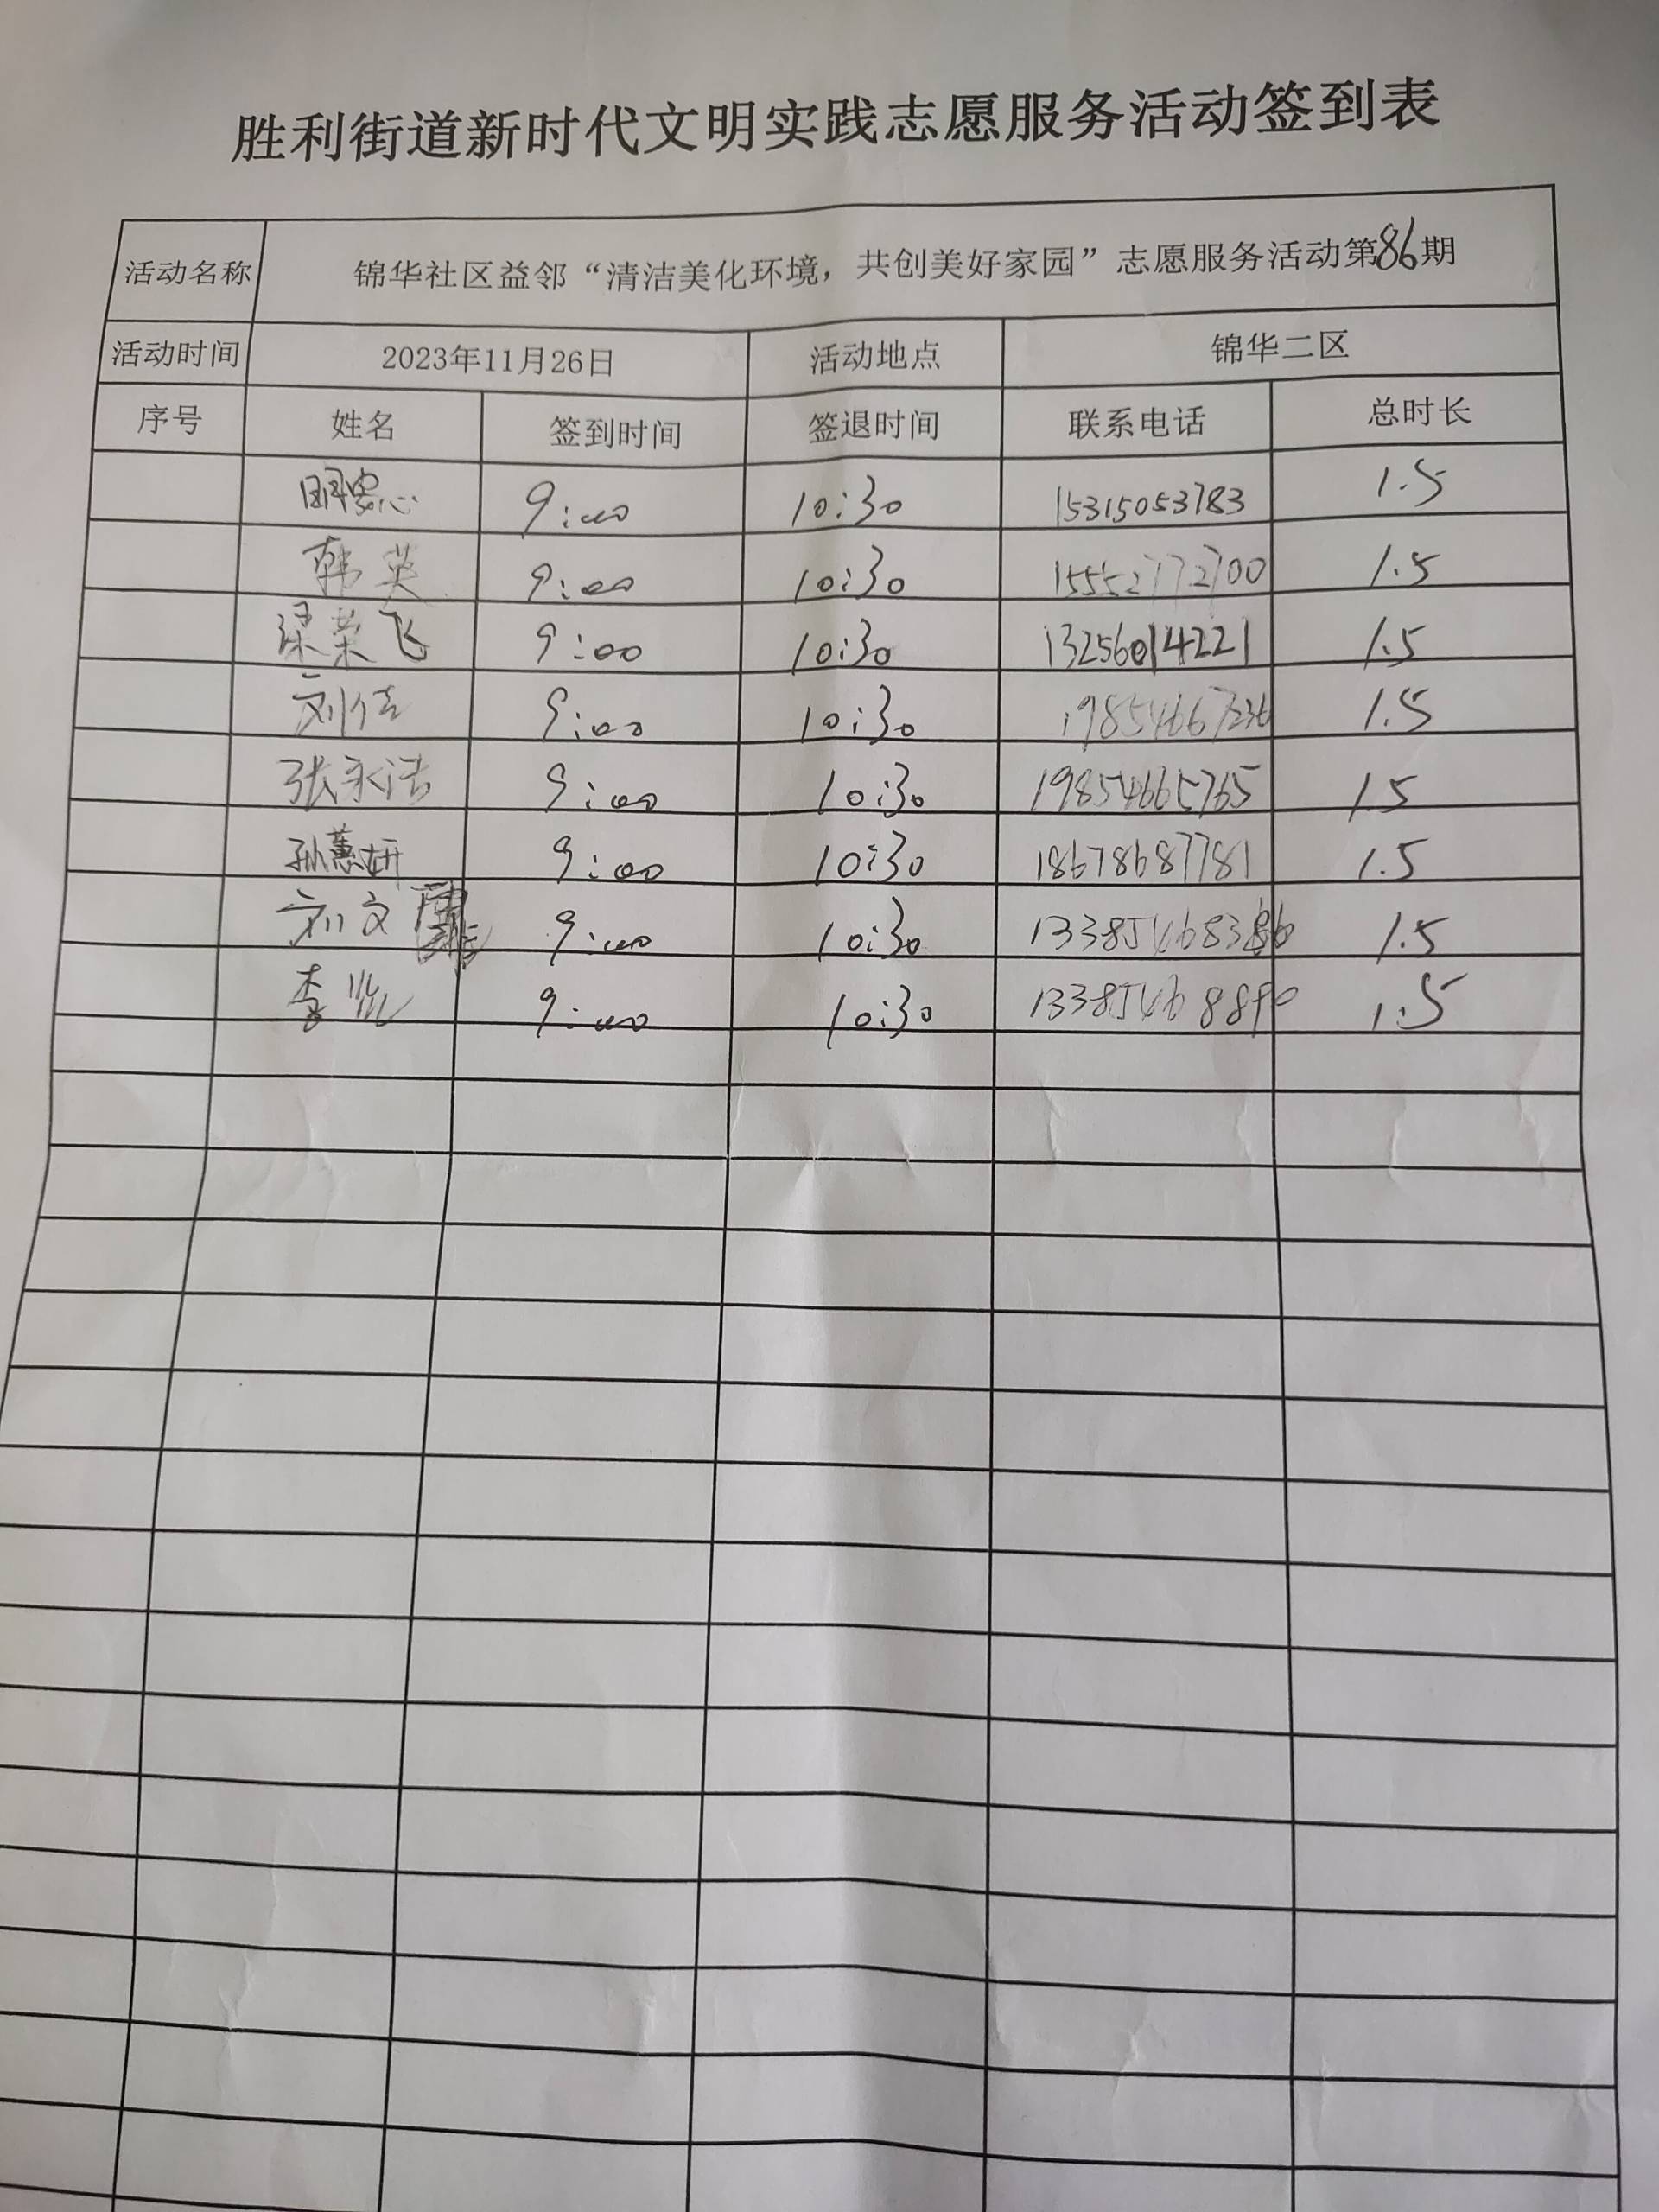 胜利街道新时代文明实践志愿服务活动签到表
活动名称 锦华社区益邻“清洁美化环境，共创美好家园”志愿服务活动第86期
活动时间 2023年11月26日 活动地点 锦华二区
序号 姓名 签到时间 签退时间 联系电话 总时长
9:00 10:30 15315053783 1.5
韩英 9:00 10:30 15552772700 1.5
梁荣飞 9:00 10:30 13256014221 1.5
刘佳 9:00 10:30 19854667236 1.5
张永浩 9:00 10:30 19854665765 1.5
孙蕙妍 9:00 10:30 18678687781 1.5
刘文 9:00 10:30 13385468386 1.5
李 9:00 10:30 13385468890 1.5